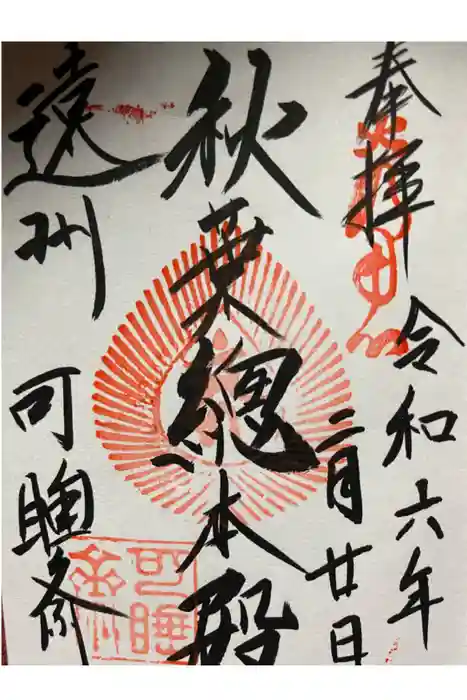 奉拝 令和六年
二月廿日
秋葉總本殿
遠州 可睡斎